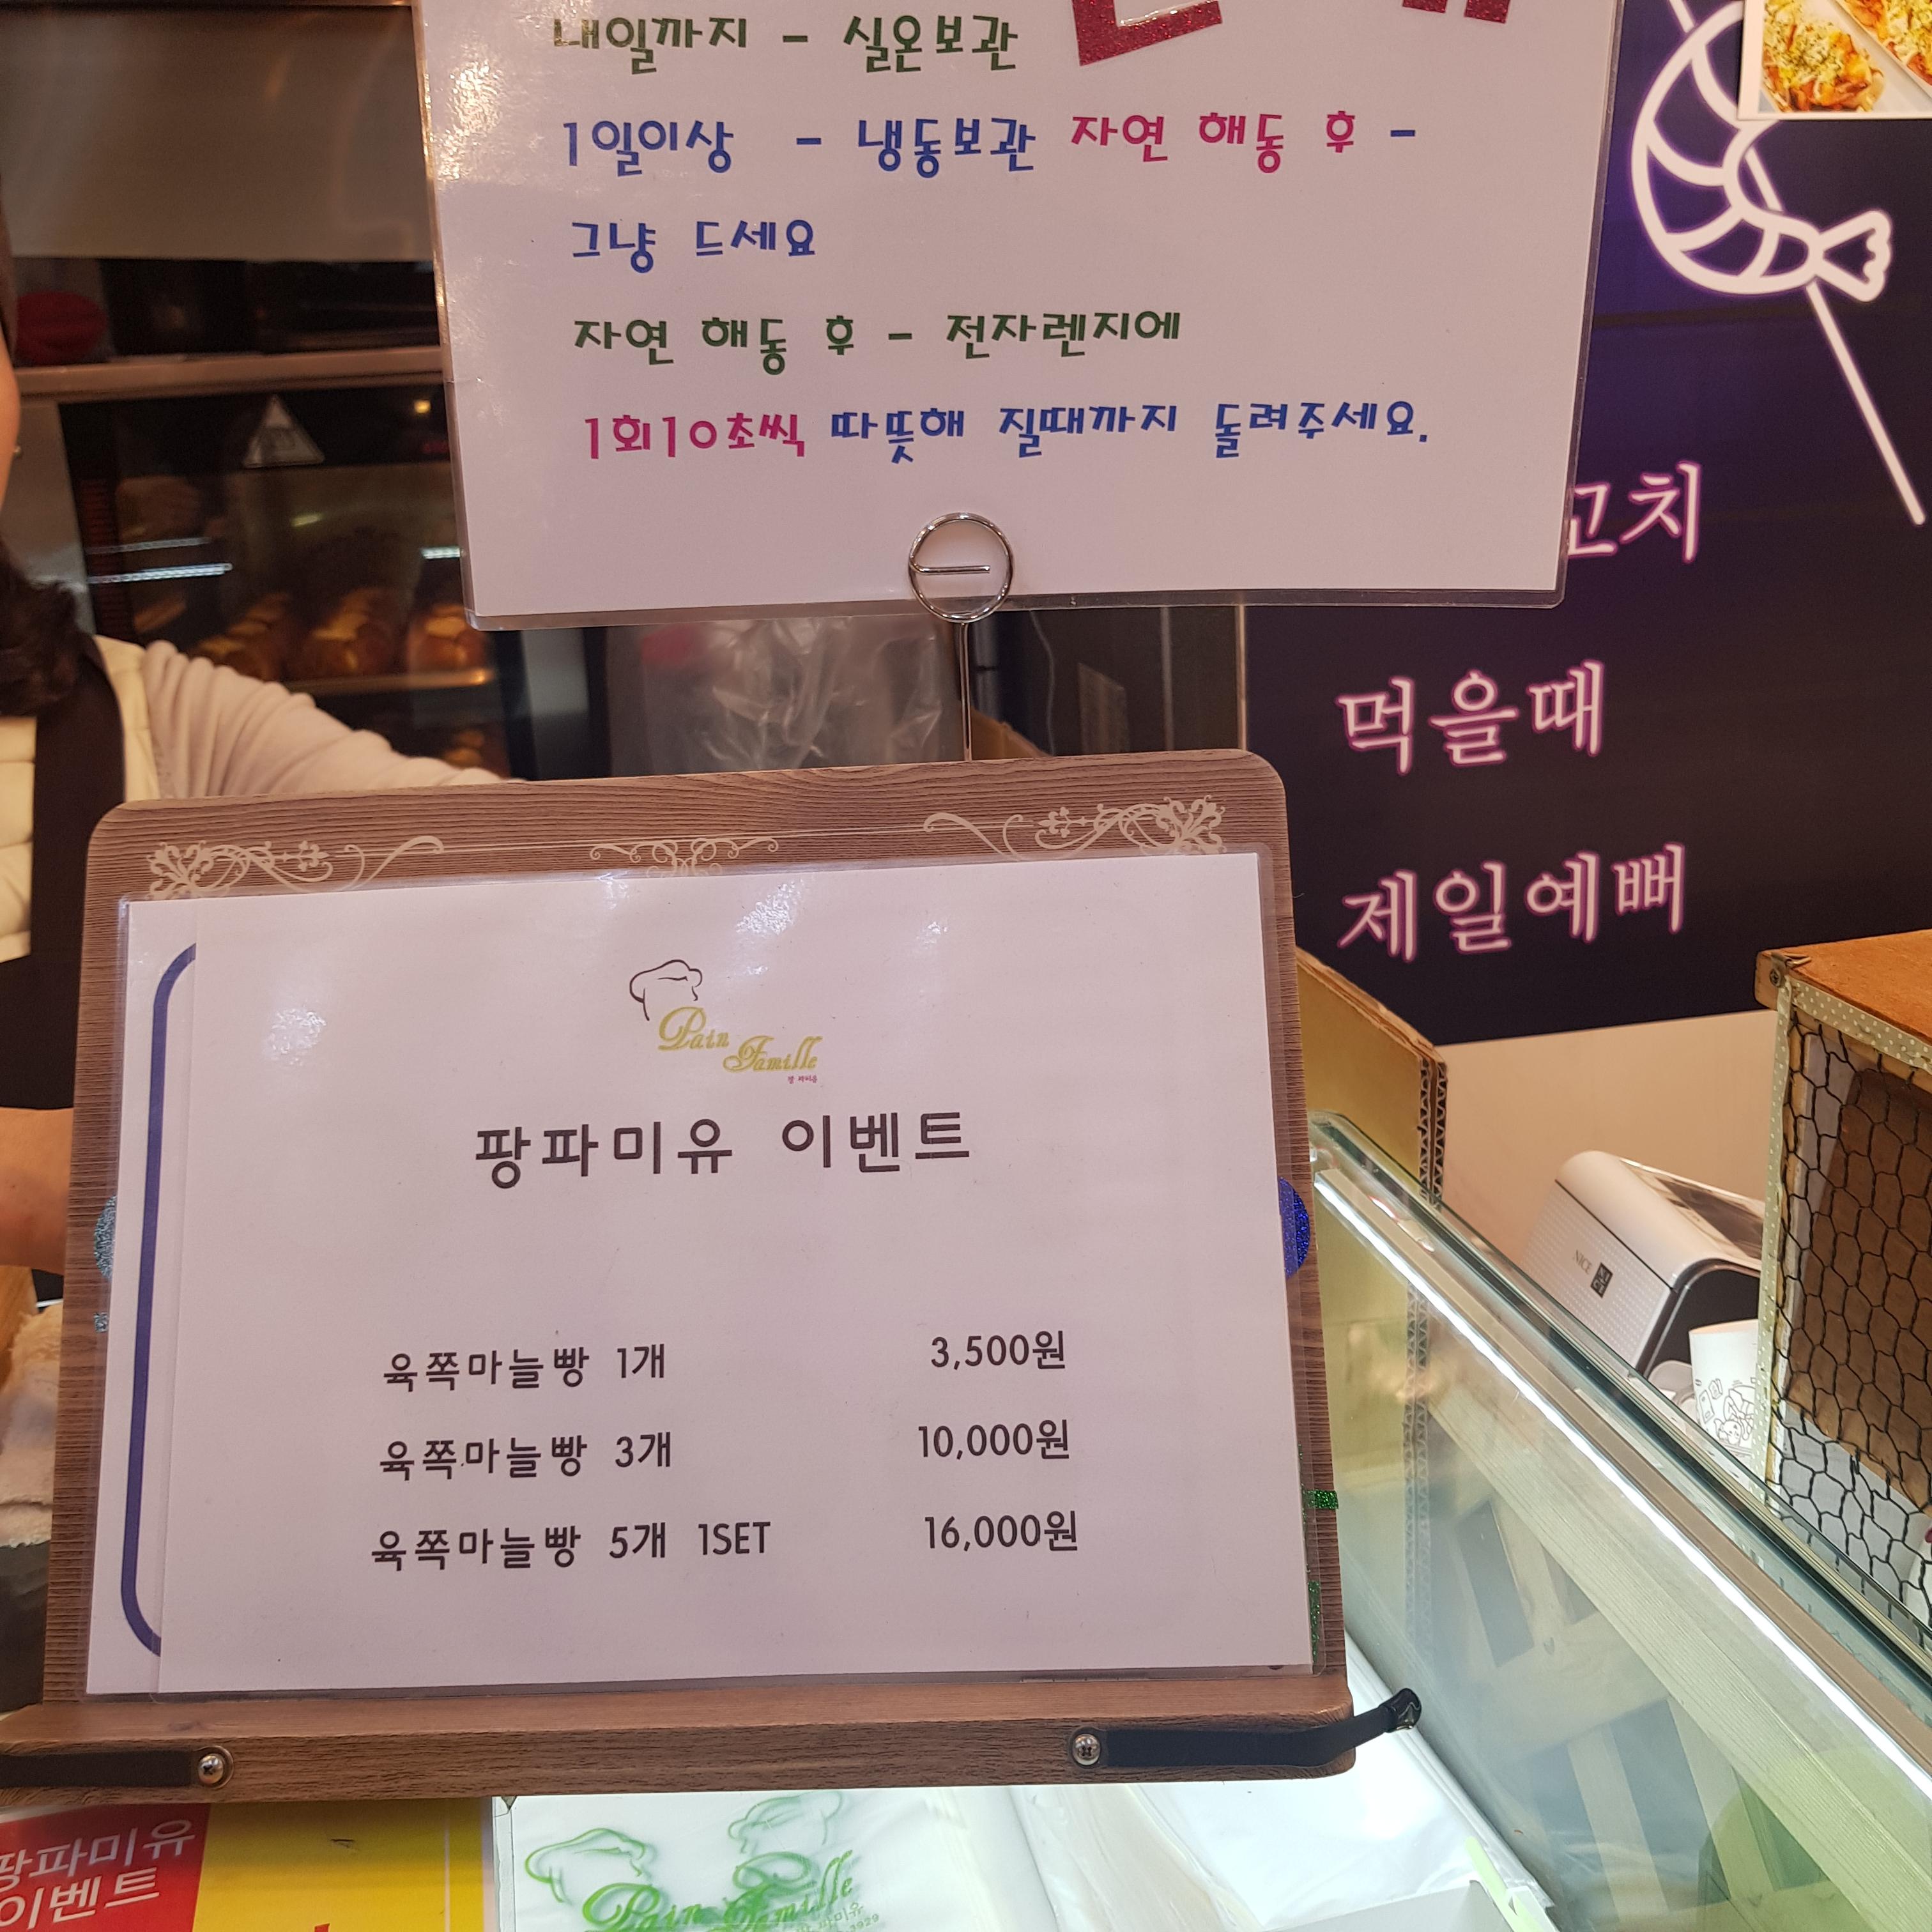 내일까지 - 실온보관
1일이상 - 냉동보관 자연 해동 후 -
그냥 드세요
자연 해동 후 - 전자렌지에
1회10초씩 따뜻해 질때까지 돌려주세요.
꼬치
먹을때
제일예뻐
Pain Famille
팡 파미유
팡파미유 이벤트
육쪽마늘빵 1개 3,500원
육쪽마늘빵 3개 10,000원
육쪽마늘빵 5개 1SET 16,000원
NICE
팡파미유
이벤트
Pain Famille
파미유
3929